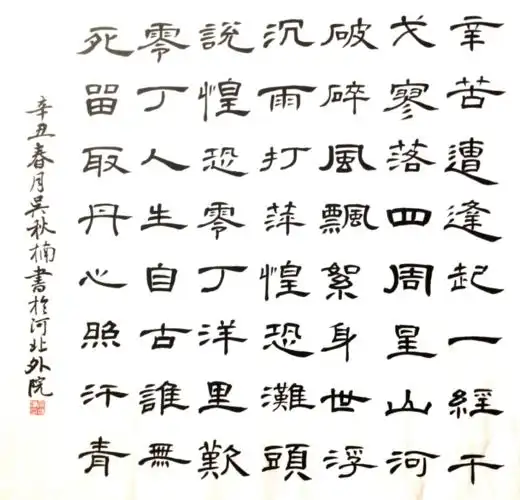 辛苦遭逢起一經干
戈寥落四周星山河
破碎風飄絮身世浮
沉雨打萍惶恐灘頭
說惶恐零丁洋里歎
零丁人生自古誰無
死留取丹心照汗青
辛丑春月吳秋楠書於河北外院